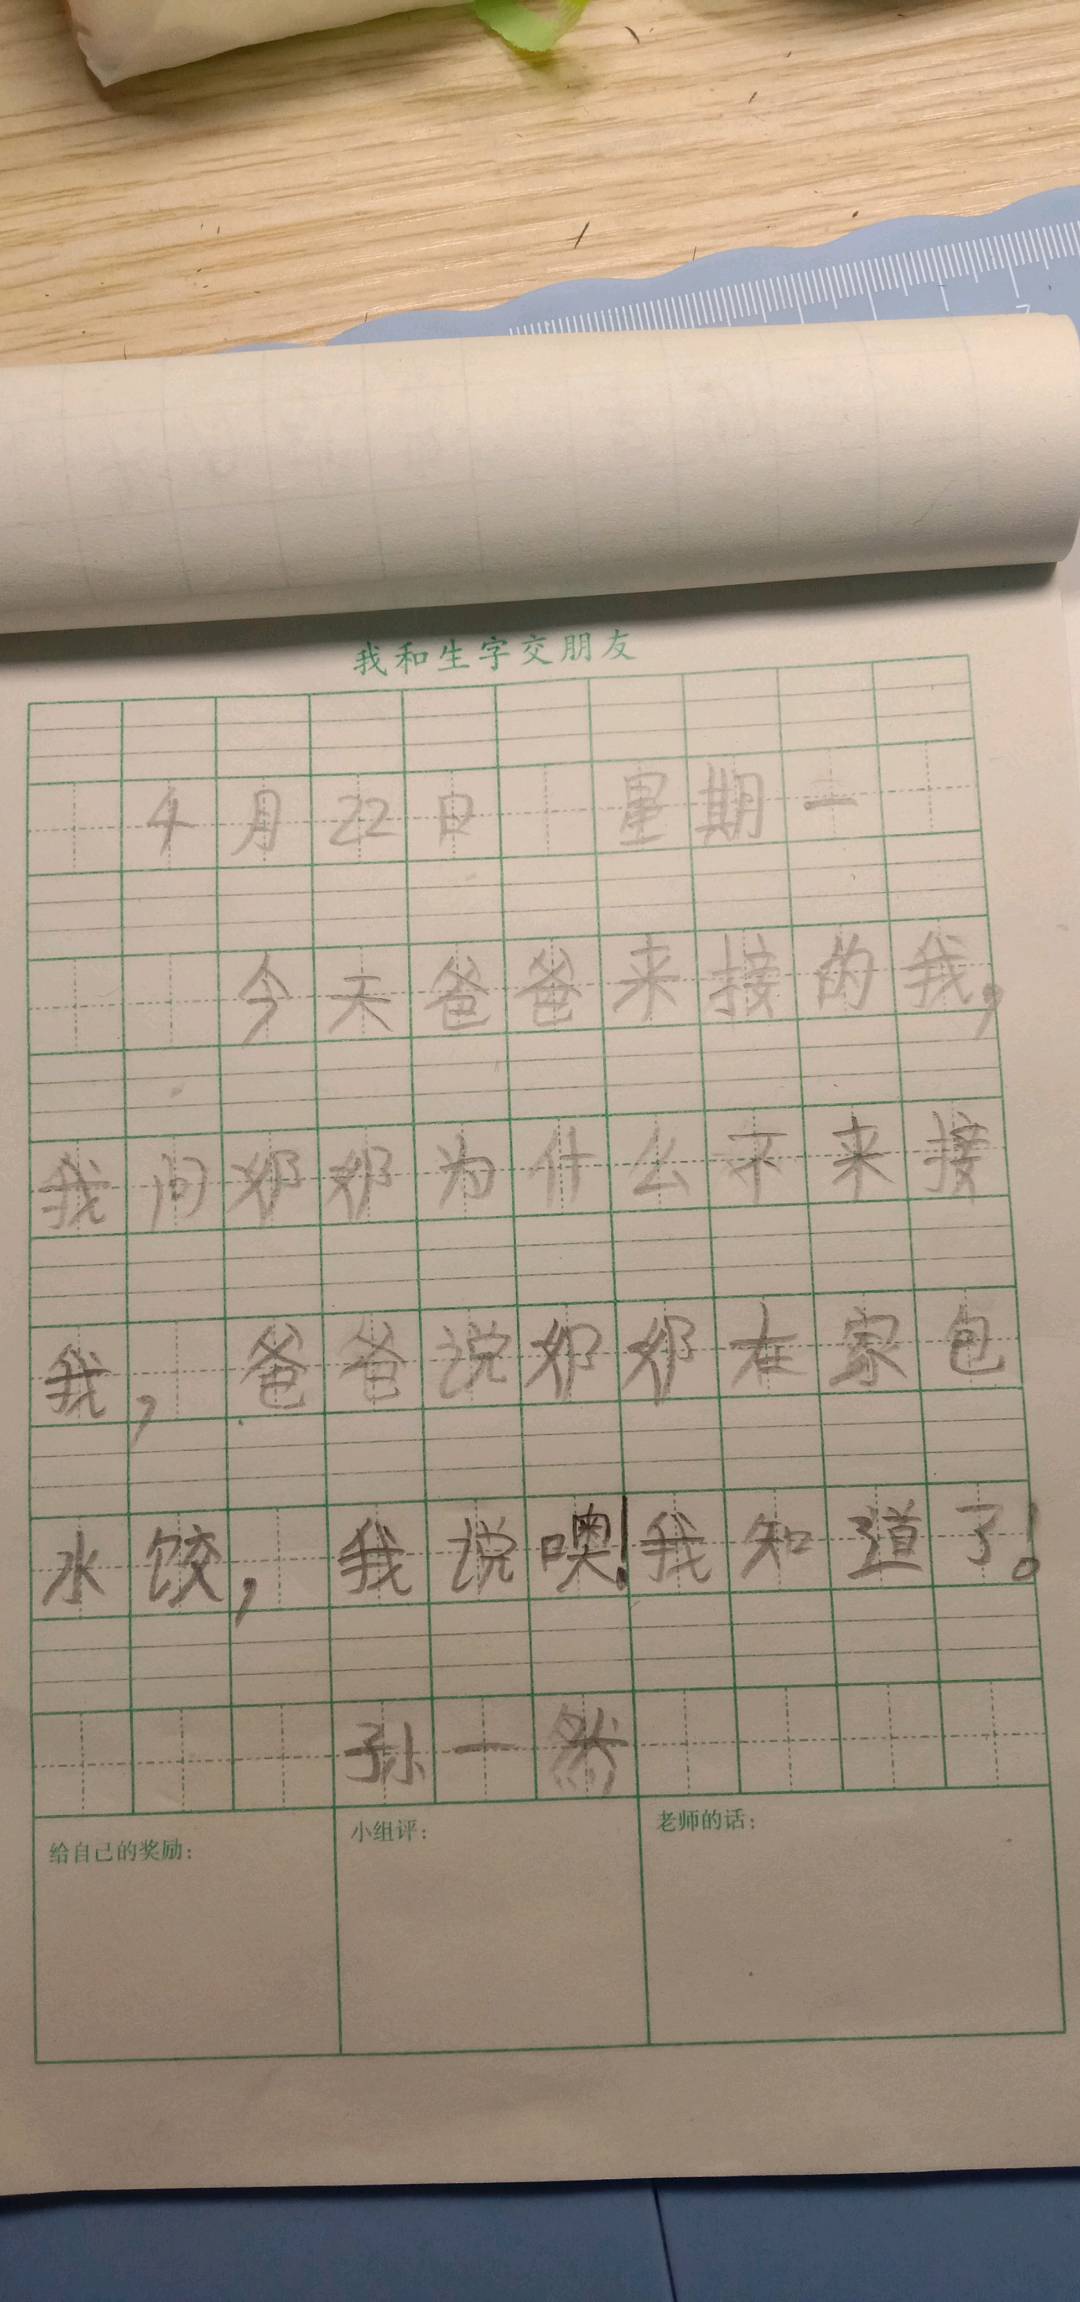 我和生字交朋友
4月22日 星期一
今天爸爸来接的我,
我问奶奶为什么不来接
我, 爸爸说奶奶在家包
水饺, 我说噢!我知道了!
孙一然
给自己的奖励:
小组评:
老师的话: